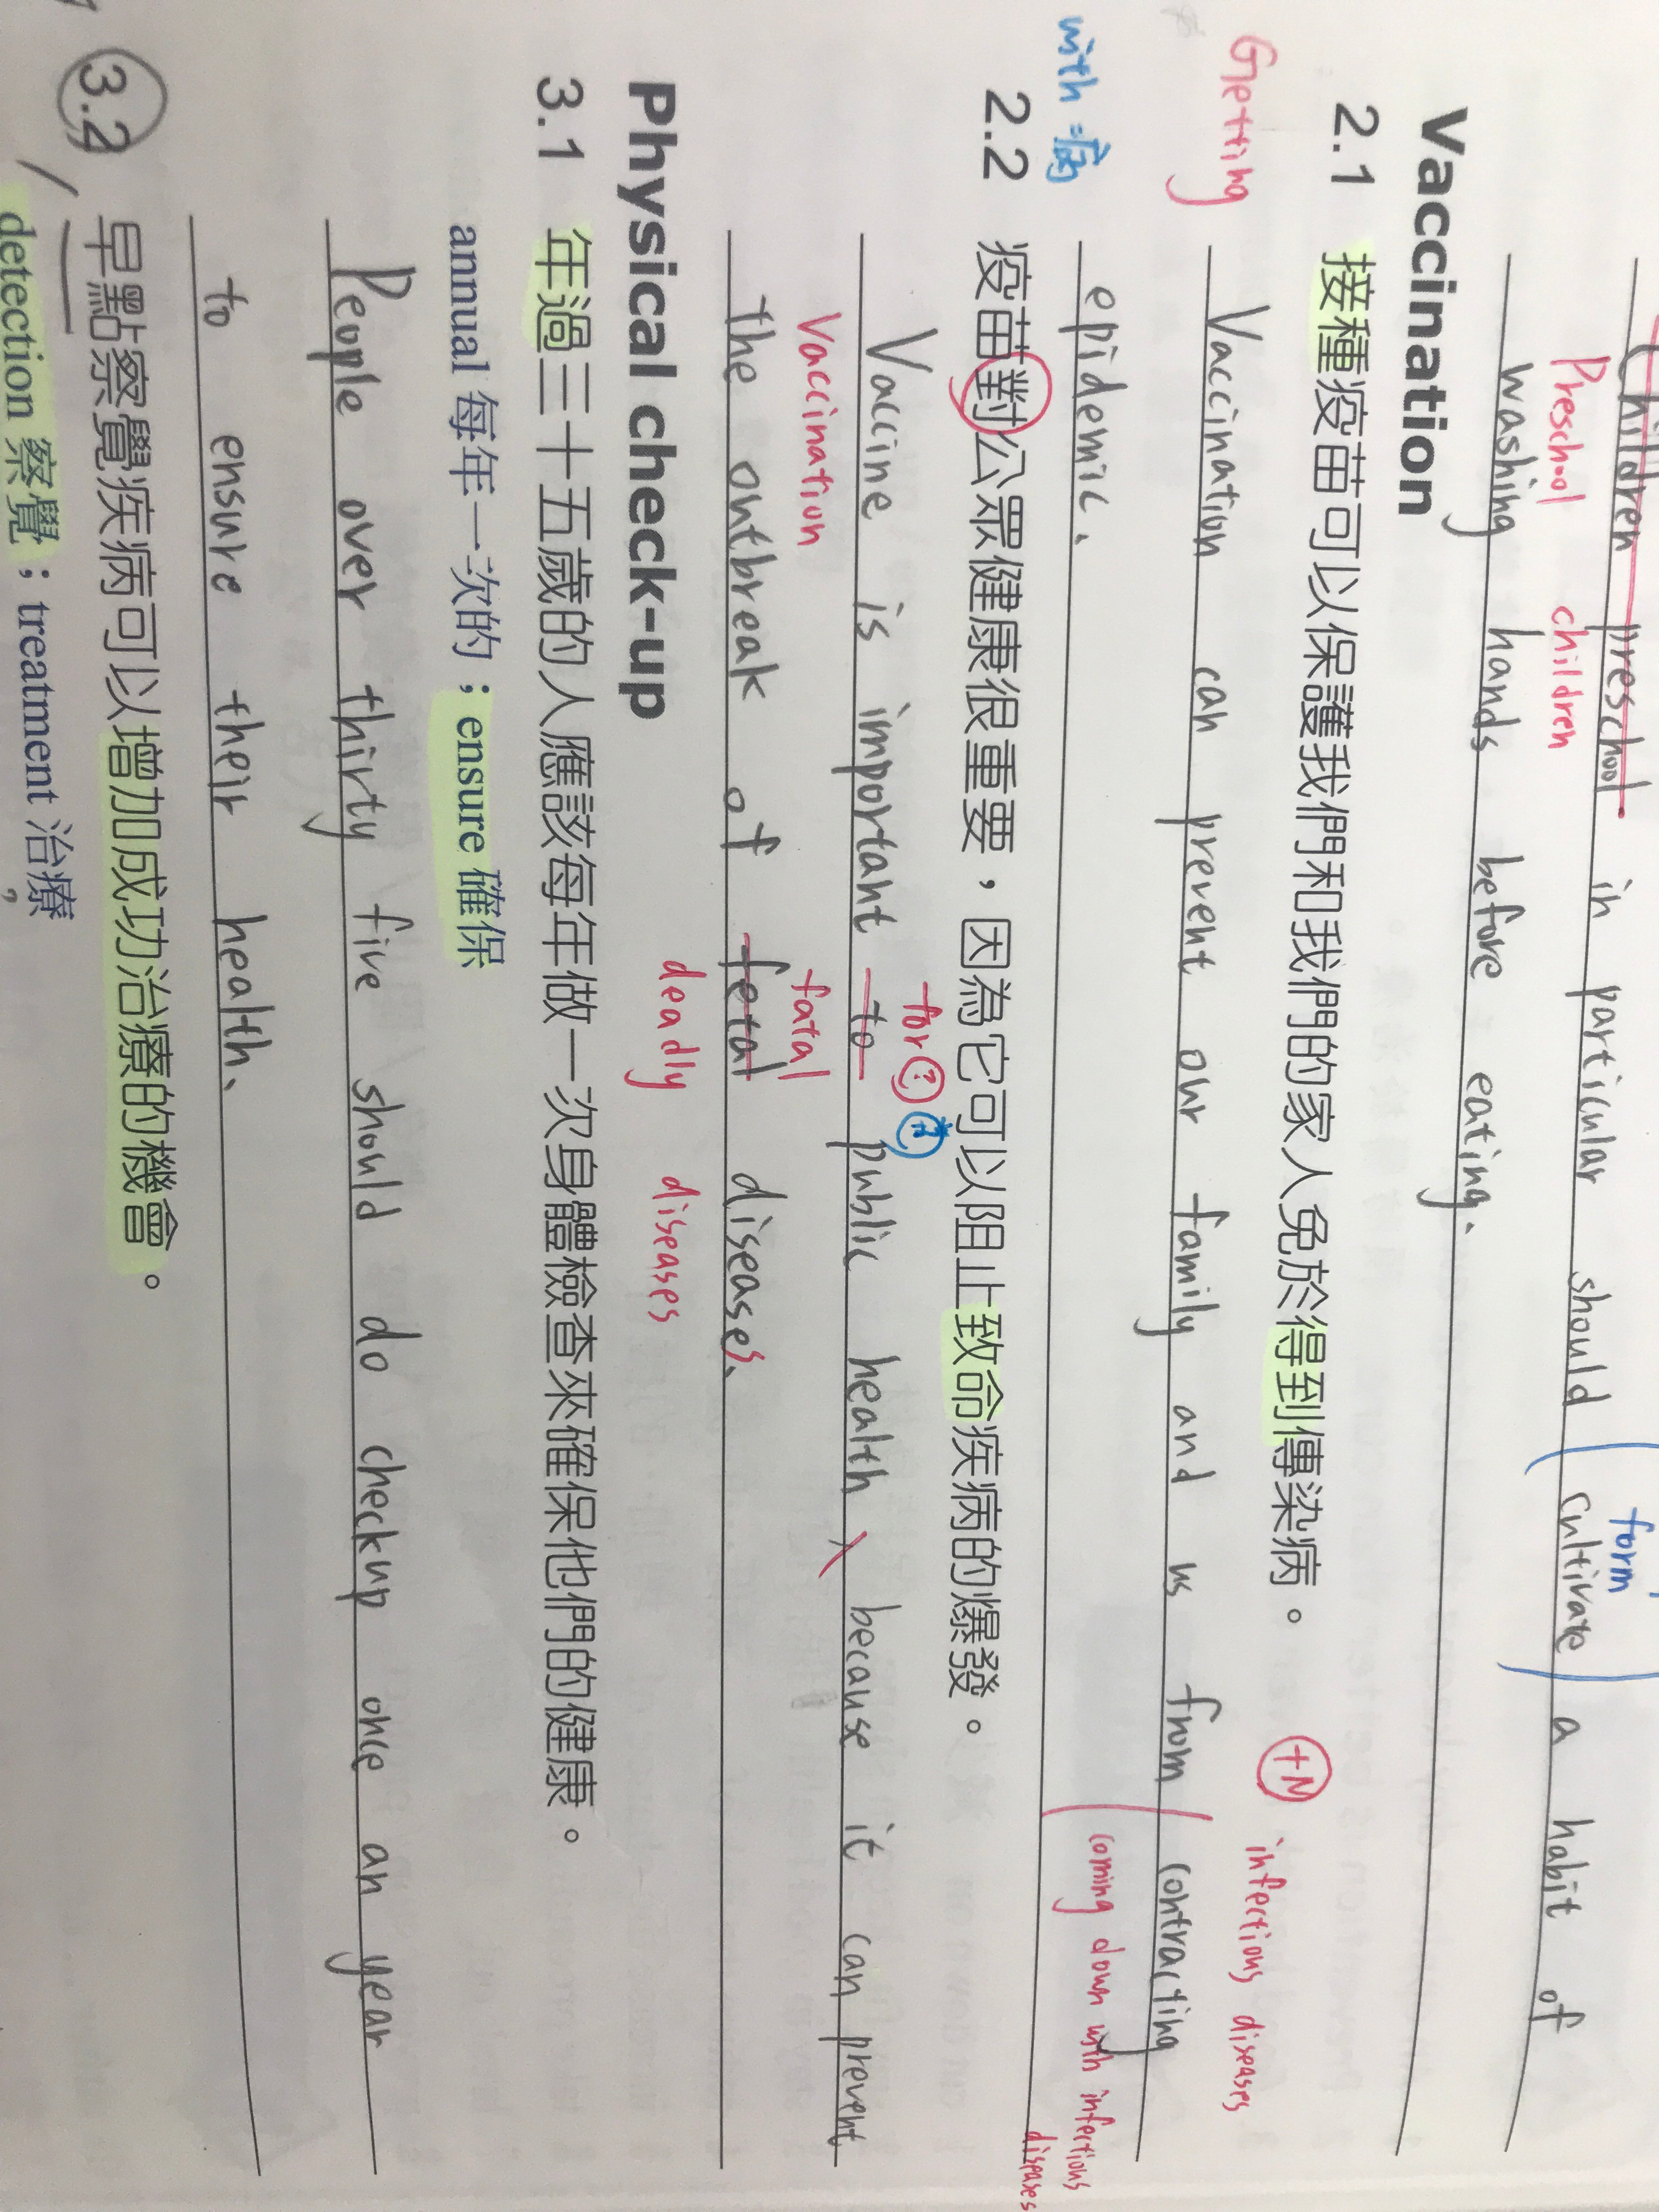 Children preschool in particular should (cultivate) a habit of
form
Preschool children
washing hands before eating.
Vaccination
2.1 接種疫苗可以保護我們和我們的家人免於得到傳染病。
+N
Getting
infectious diseases
Vaccination can prevent our family and us from (contracting
coming down with infectious diseases
with = 病
epidemic.
2.2 疫苗對公眾健康很重要,因為它可以阻止致命疾病的爆發。
for
Vaccine is important to public health because it can prevent
Vaccination
fatal
the outbreak of fetal diseases.
deadly diseases
Physical check-up
3.1 年過三十五歲的人應該每年做一次身體檢查來確保他們的健康。
annual 每年一次的;ensure 確保
People over thirty five should do checkup once an year
to ensure their health.
3.2 早點察覺疾病可以增加成功治療的機會。
detection 察覺;treatment 治療